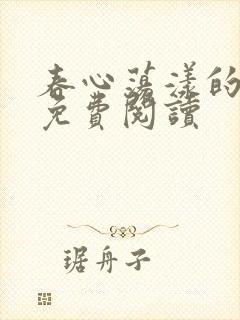 春心蕩漾的
免費閱讀
琚舟子